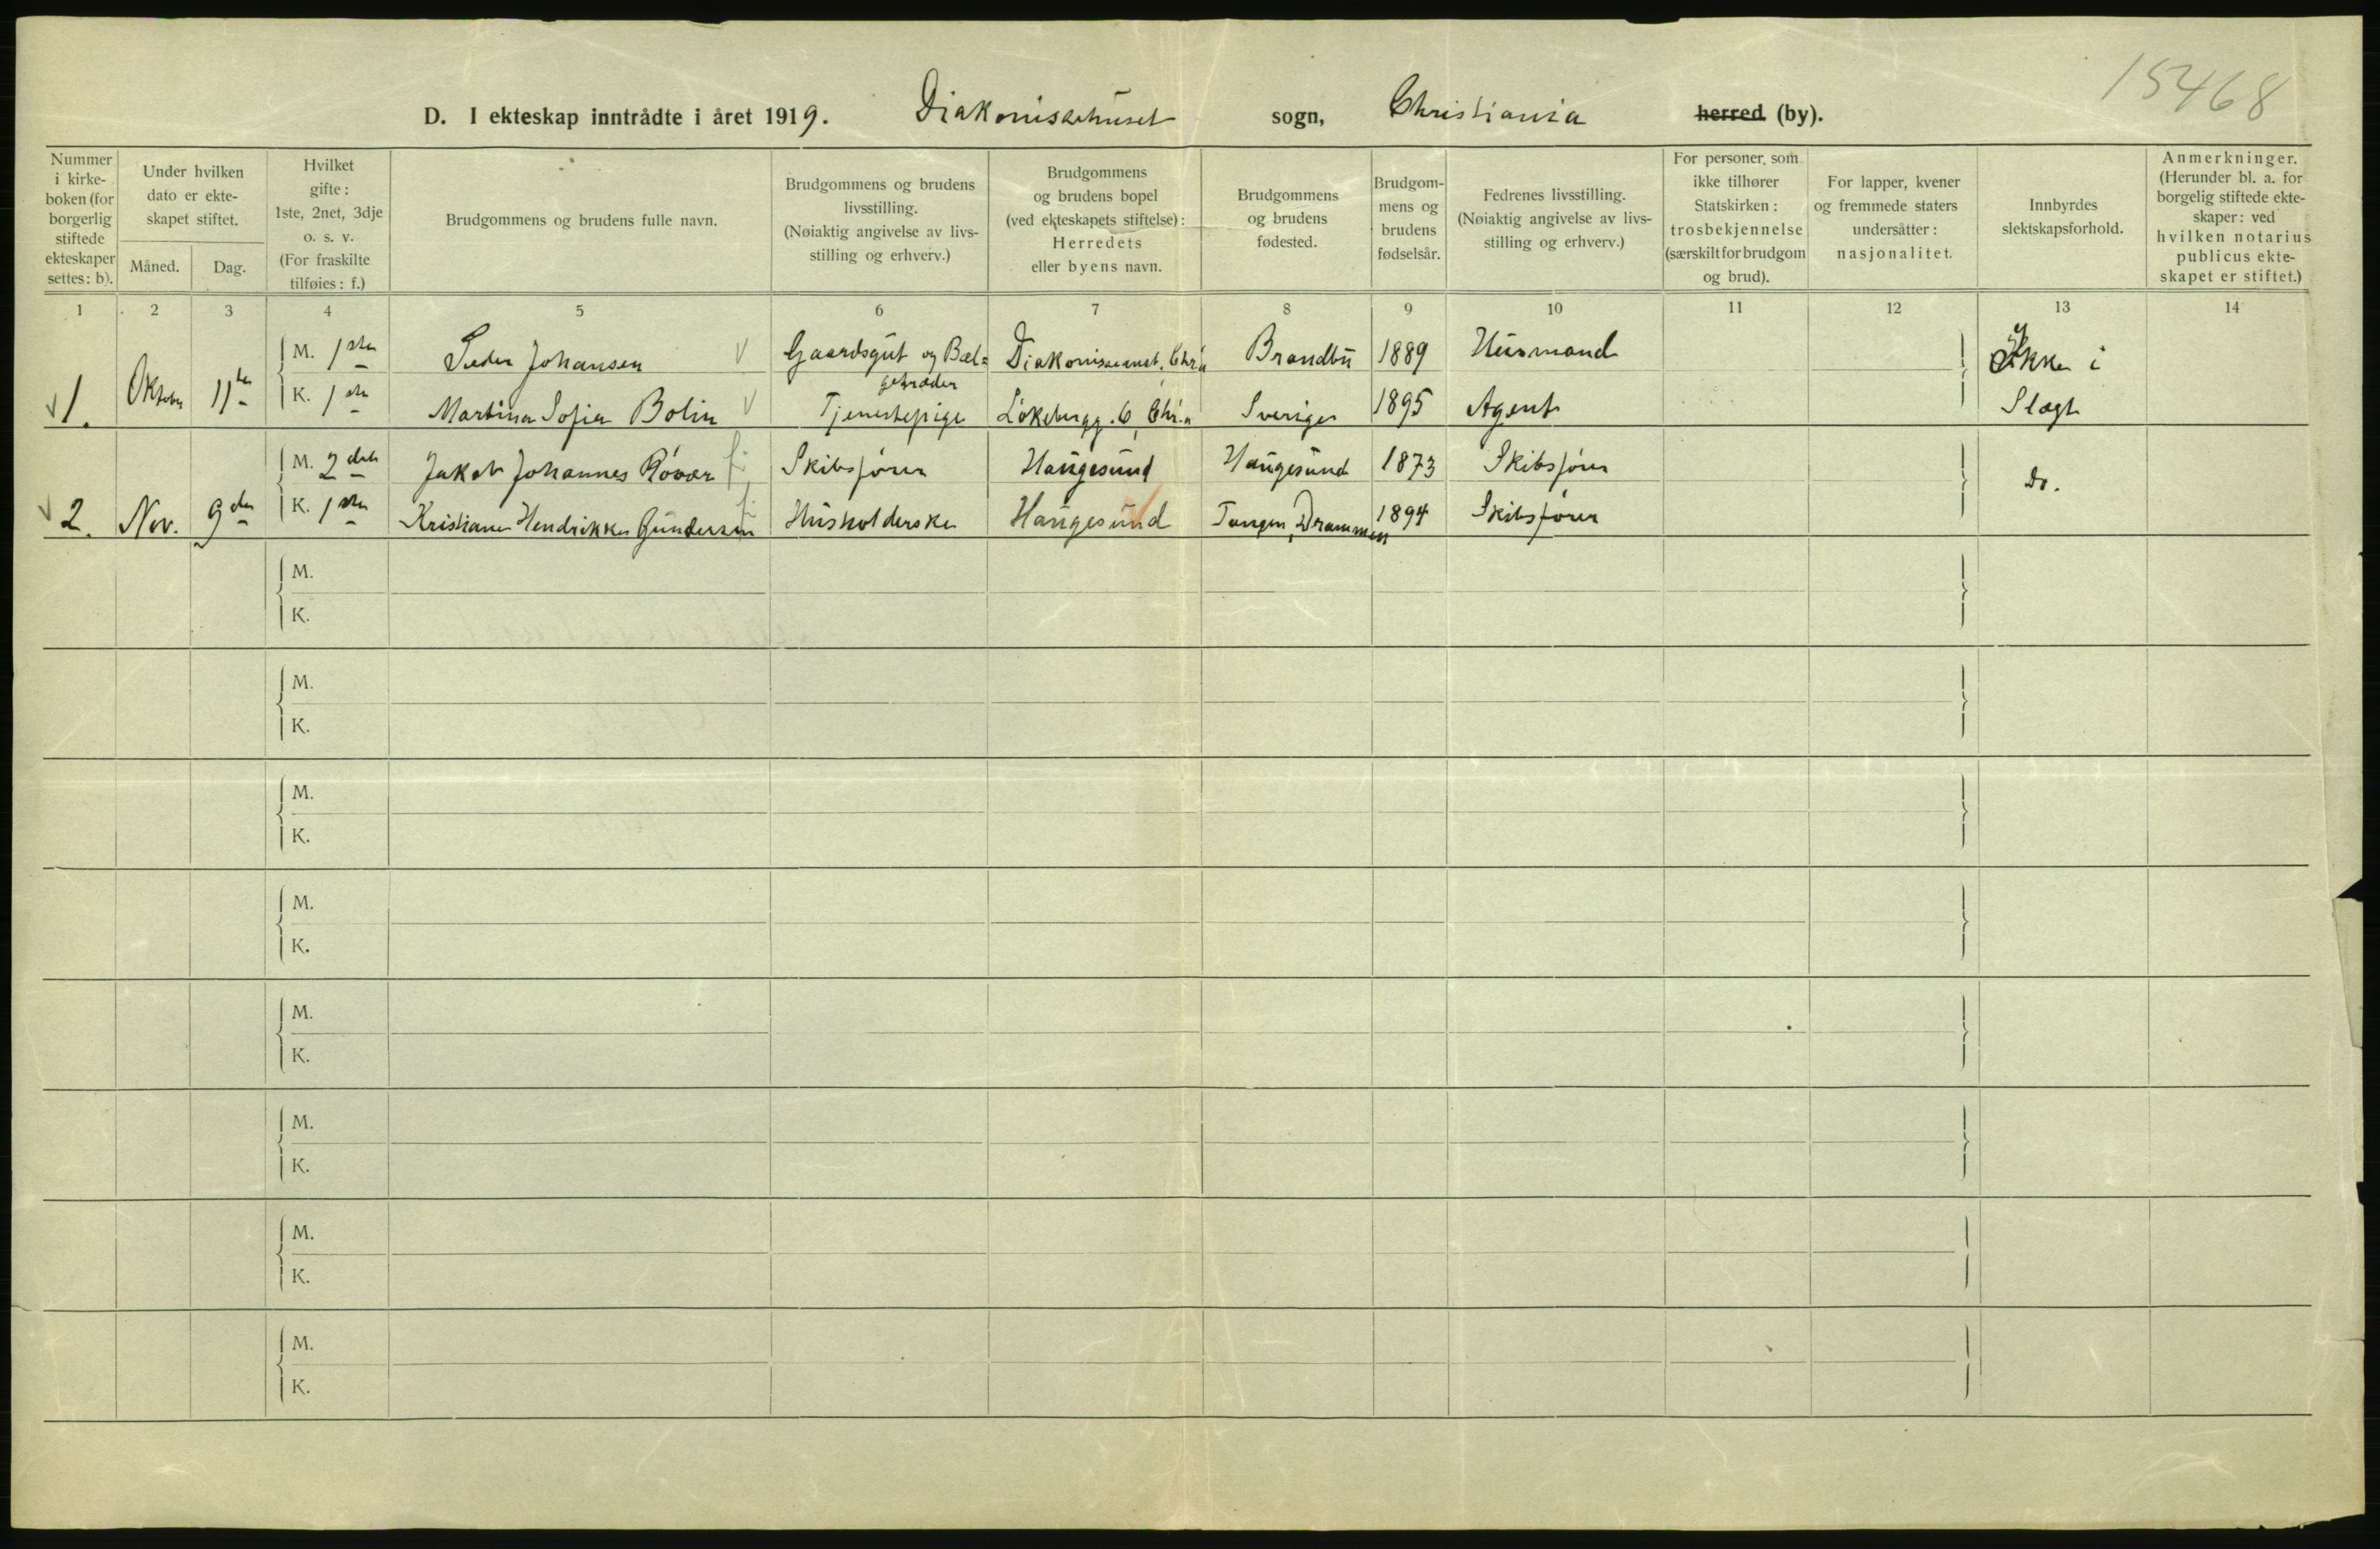 15468
D. I ekteskap inntrådte i året 1919. Diakonissehuset sogn, Christiania herred (by).
Nummer i kirke-boken (for borgerlig stiftede ekteskaper settes: b).
Under hvilken dato er ekte-skapet stiftet.
Måned.
Dag.
Hvilket gifte: 1ste, 2net, 3dje o. s. v. (For fraskilte tilføies: f.)
Brudgommens og brudens fulle navn.
Brudgommens og brudens livsstilling. (Nøiaktig angivelse av livs-stilling og erhverv.)
Brudgommens og brudens bopel (ved ekteskapets stiftelse): Herredets eller byens navn.
Brudgommens og brudens fødested.
Brudgom-mens og brudens fødselsår.
Fedrenes livsstilling. (Nøiaktig angivelse av livs-stilling og erhverv.)
For personer, som ikke tilhører Statskirken: trosbekjennelse (særskilt for brudgom og brud).
For lapper, kvener og fremmede staters undersåtter: nasjonalitet.
Innbyrdes slektskapsforhold.
Anmerkninger. (Herunder bl. a. for borgelig stiftede ekte-skaper: ved hvilken notarius publicus ekte-skapet er stiftet.)
1 2 3 4 5 6 7 8 9 10 11 12 13 14
M. 1ste Peder Johansen Gaardsgut og Bæl= Diakonisseanst. Chr.a Brandbu 1889 Husmand Ikke i
getræder
1. Oktober 11te K. 1ste Martina Sofia Bolin Tjenestepige Løkebergg. 6, Chr.a Sverige 1895 Agent Slægt
M. 2det Jakob Johannes Røvær Skibsfører Haugesund Haugesund 1873 Skibsfører do.
2. Nov. 9de K. 1ste Kristiane Hendrikke Gundersen Husholderske Haugesund Tangen, Drammen 1894 Skibsfører
M.
K.
M.
K.
M.
K.
M.
K.
M.
K.
M.
K.
M.
K.
M.
K.